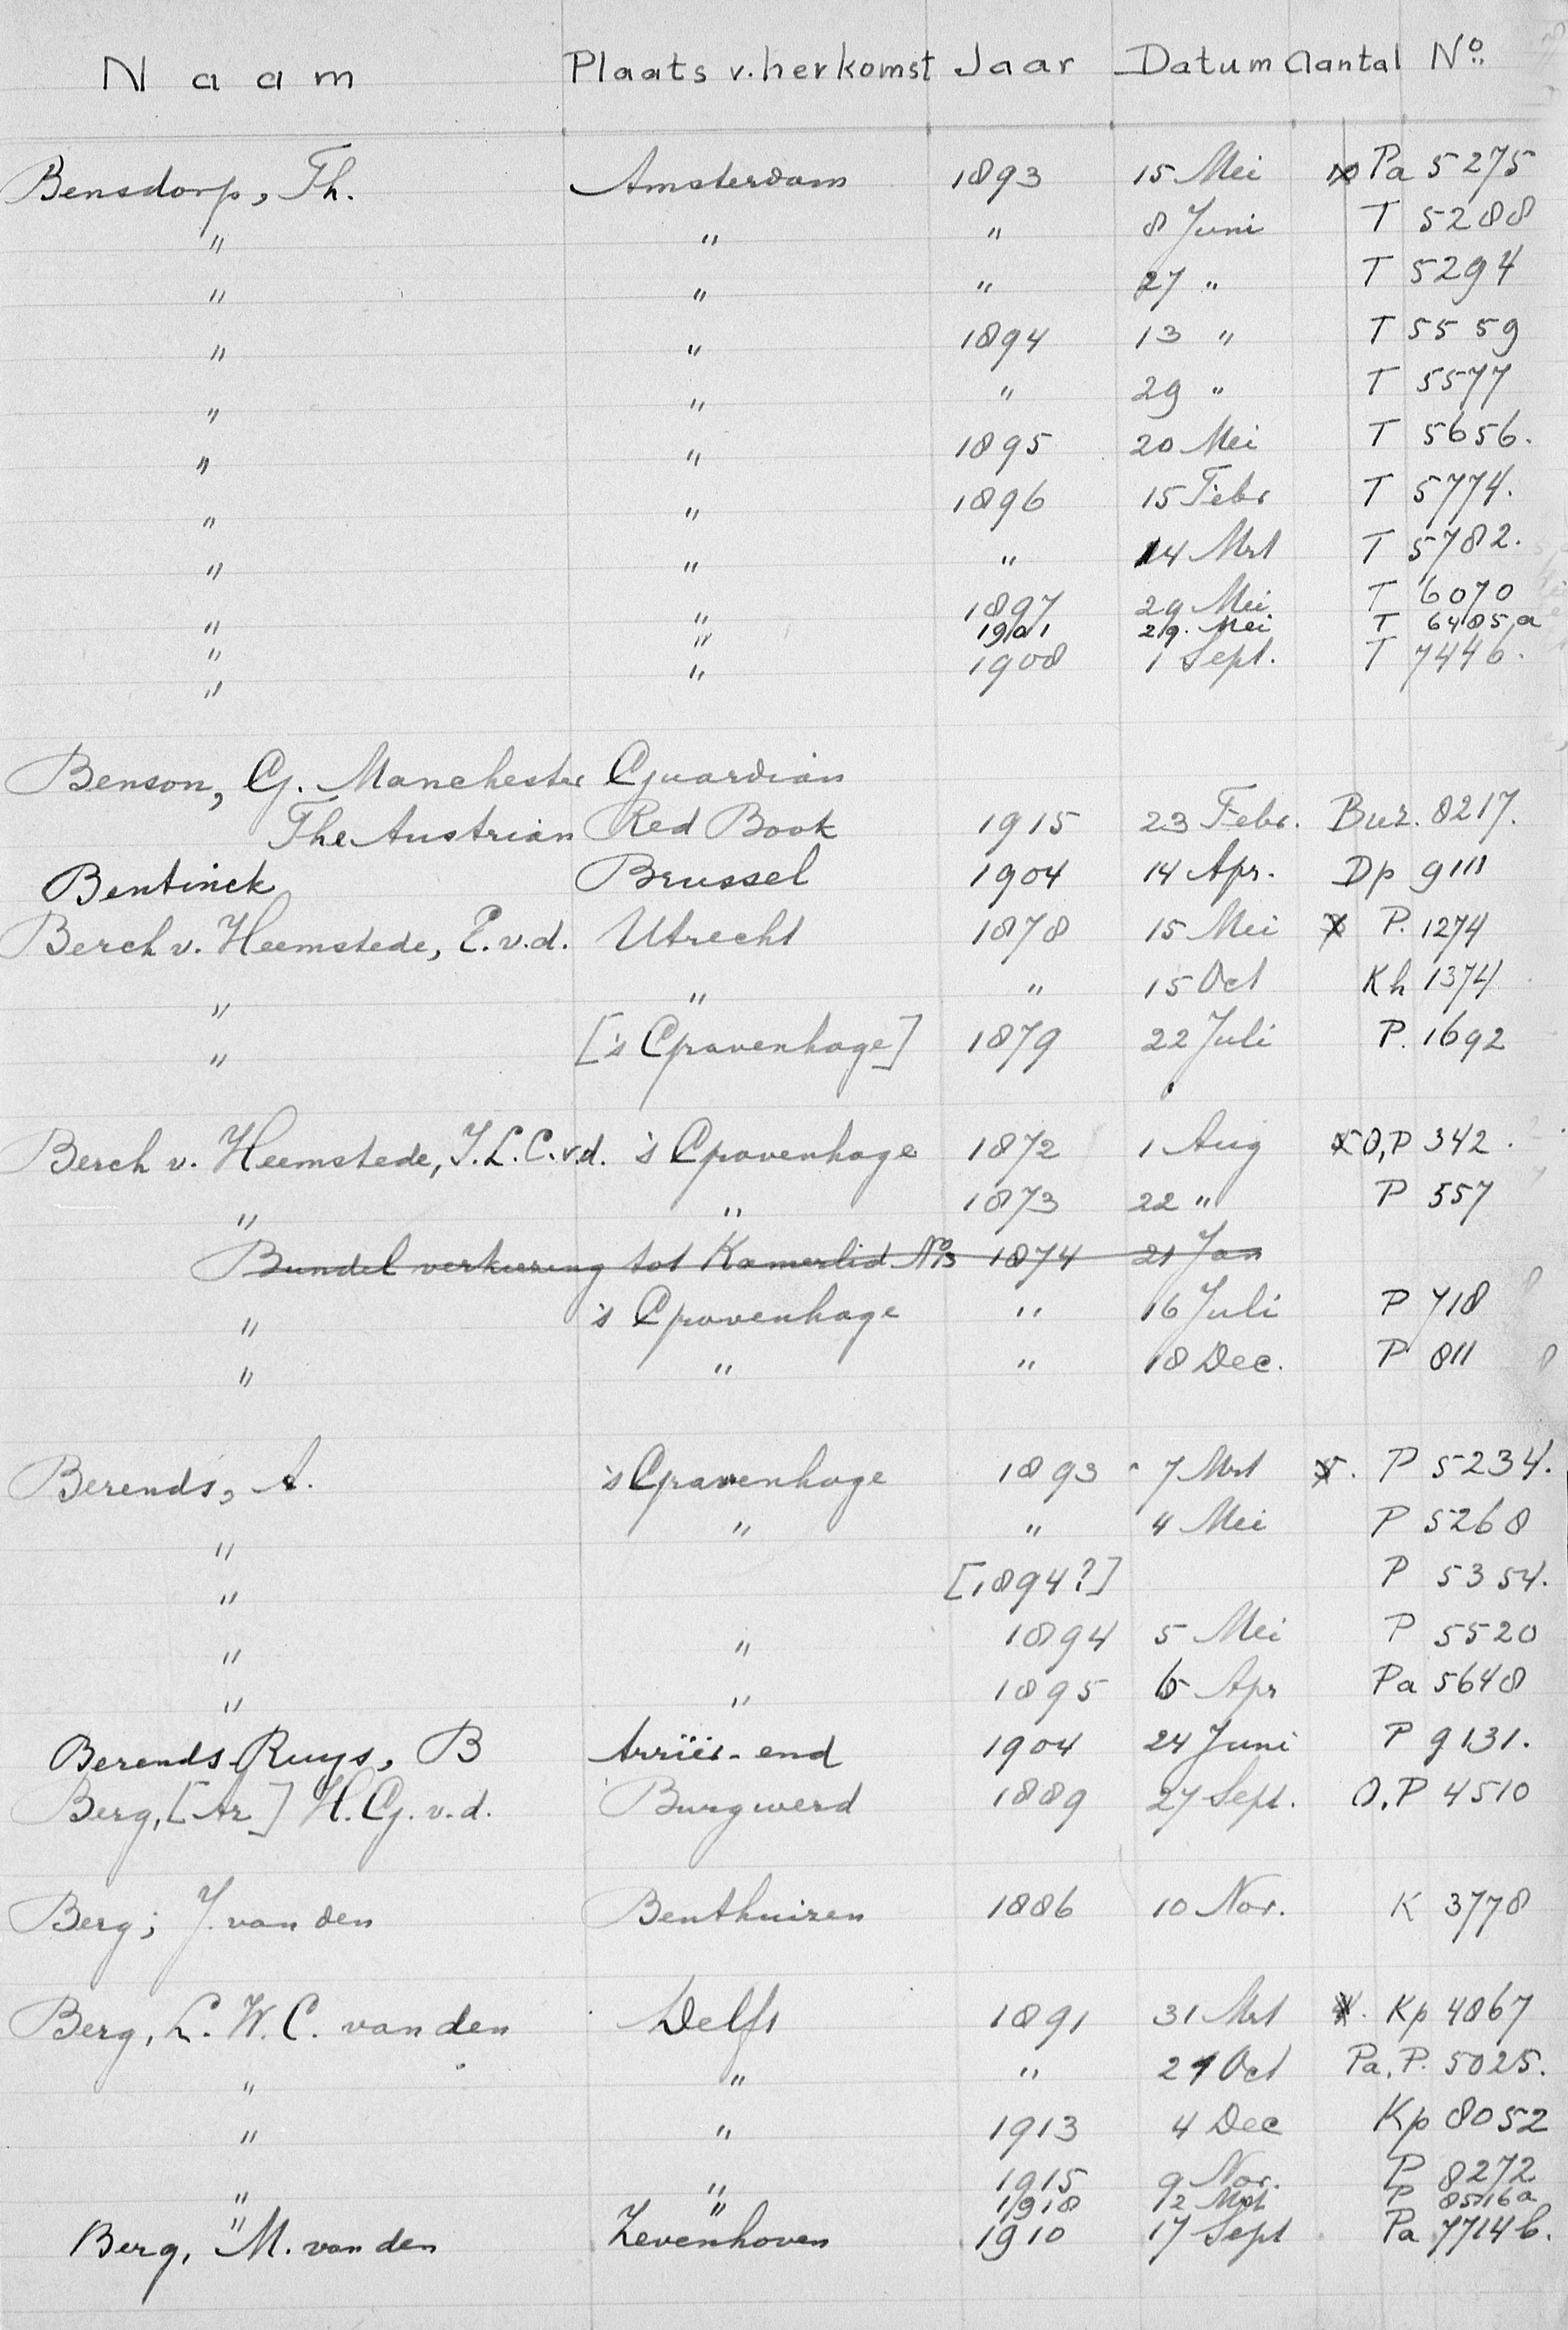 Naam Plaats v. herkomst Jaar Datum Aantal No.
Bensdorp, Th. Amsterdam 1893 15 Mei Pa 5275
" " " 8 Juni T 5288
" " " 27 " T 5294
" " 1894 13 " T 5559
" " " 29 " T 5577
" " 1895 20 Mei T 5656.
" " 1896 15 Febr T 5774.
" " " 14 Mrt T 5782.
" " 1897 29 Mei T 6070
" " 1901 29. Mei T 6485a
" " 1908 1 Sept. T 7446.
Benson, G. Manchester Guardian
The Austrian Red Book 1915 23 Febr. Bur. 8217.
Bentinck Brussel 1904 14 Apr. Dp 9111
Berch v. Heemstede, E. v. d. Utrecht 1878 15 Mei P. 1274
" " " 15 Oct Kh 1374
" ['s Gravenhage] 1879 22 Juli P. 1692
Berch v. Heemstede, I. L. C. v.d. 's Gravenhage 1872 1 Aug O,P 342.
" " 1873 22 " P 557
Bundel verkiezing tot Kamerlid No 3 1874 21 Jan
" 's Gravenhage " 16 Juli P 718
" " " 18 Dec. P 811
Berends, A. 's Gravenhage 1893 7 Mrt P 5234.
" " " 4 Mei P 5268
" [1894?] P 5354.
" " 1894 5 Mei P 5520
" " 1895 6 Apr Pa 5648
Berends Ruys, B end 1904 24 Juni P 9131.
Berg, [Az] H. G. v. d. Burgwerd 1889 27 Sept. O,P 4510
Berg, J. van den Benthuizen 1886 10 Nov. K 3778
Berg, L. W. C. van den Delft 1891 31 Mrt Kp 4867
" " " 21 Oct Pa, P. 5025.
" " 1913 4 Dec Kp 8052
" " 1915 9 Nov. P 8272
" " 1918 12 Mrt P 8516a
Berg, M. van den Zevenhoven 1910 17 Sept Pa 7714b.